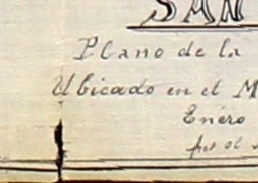 SAN
Plano de la
Ubicado en el M
Enero
por el